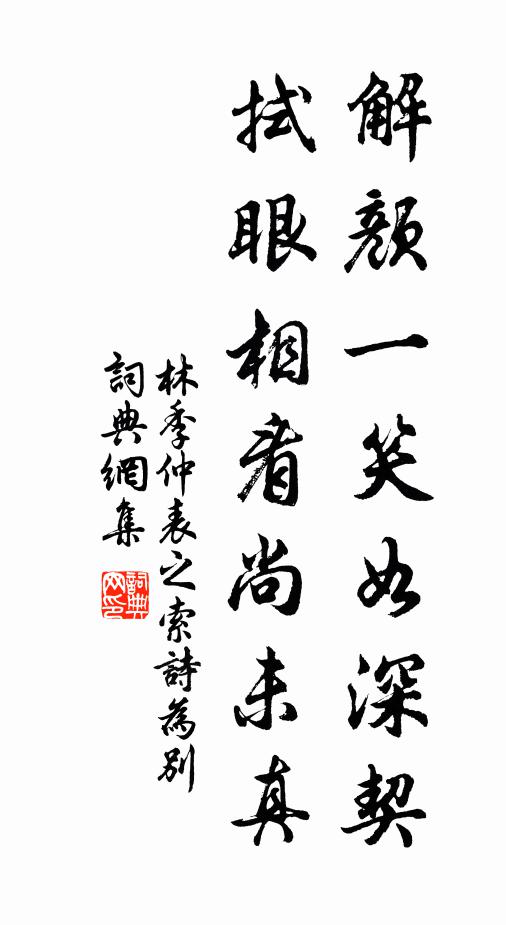 解顏一笑如深契
拭眼相看尚未真
林季仲表之索詩為別
詞典網集
詞典網印